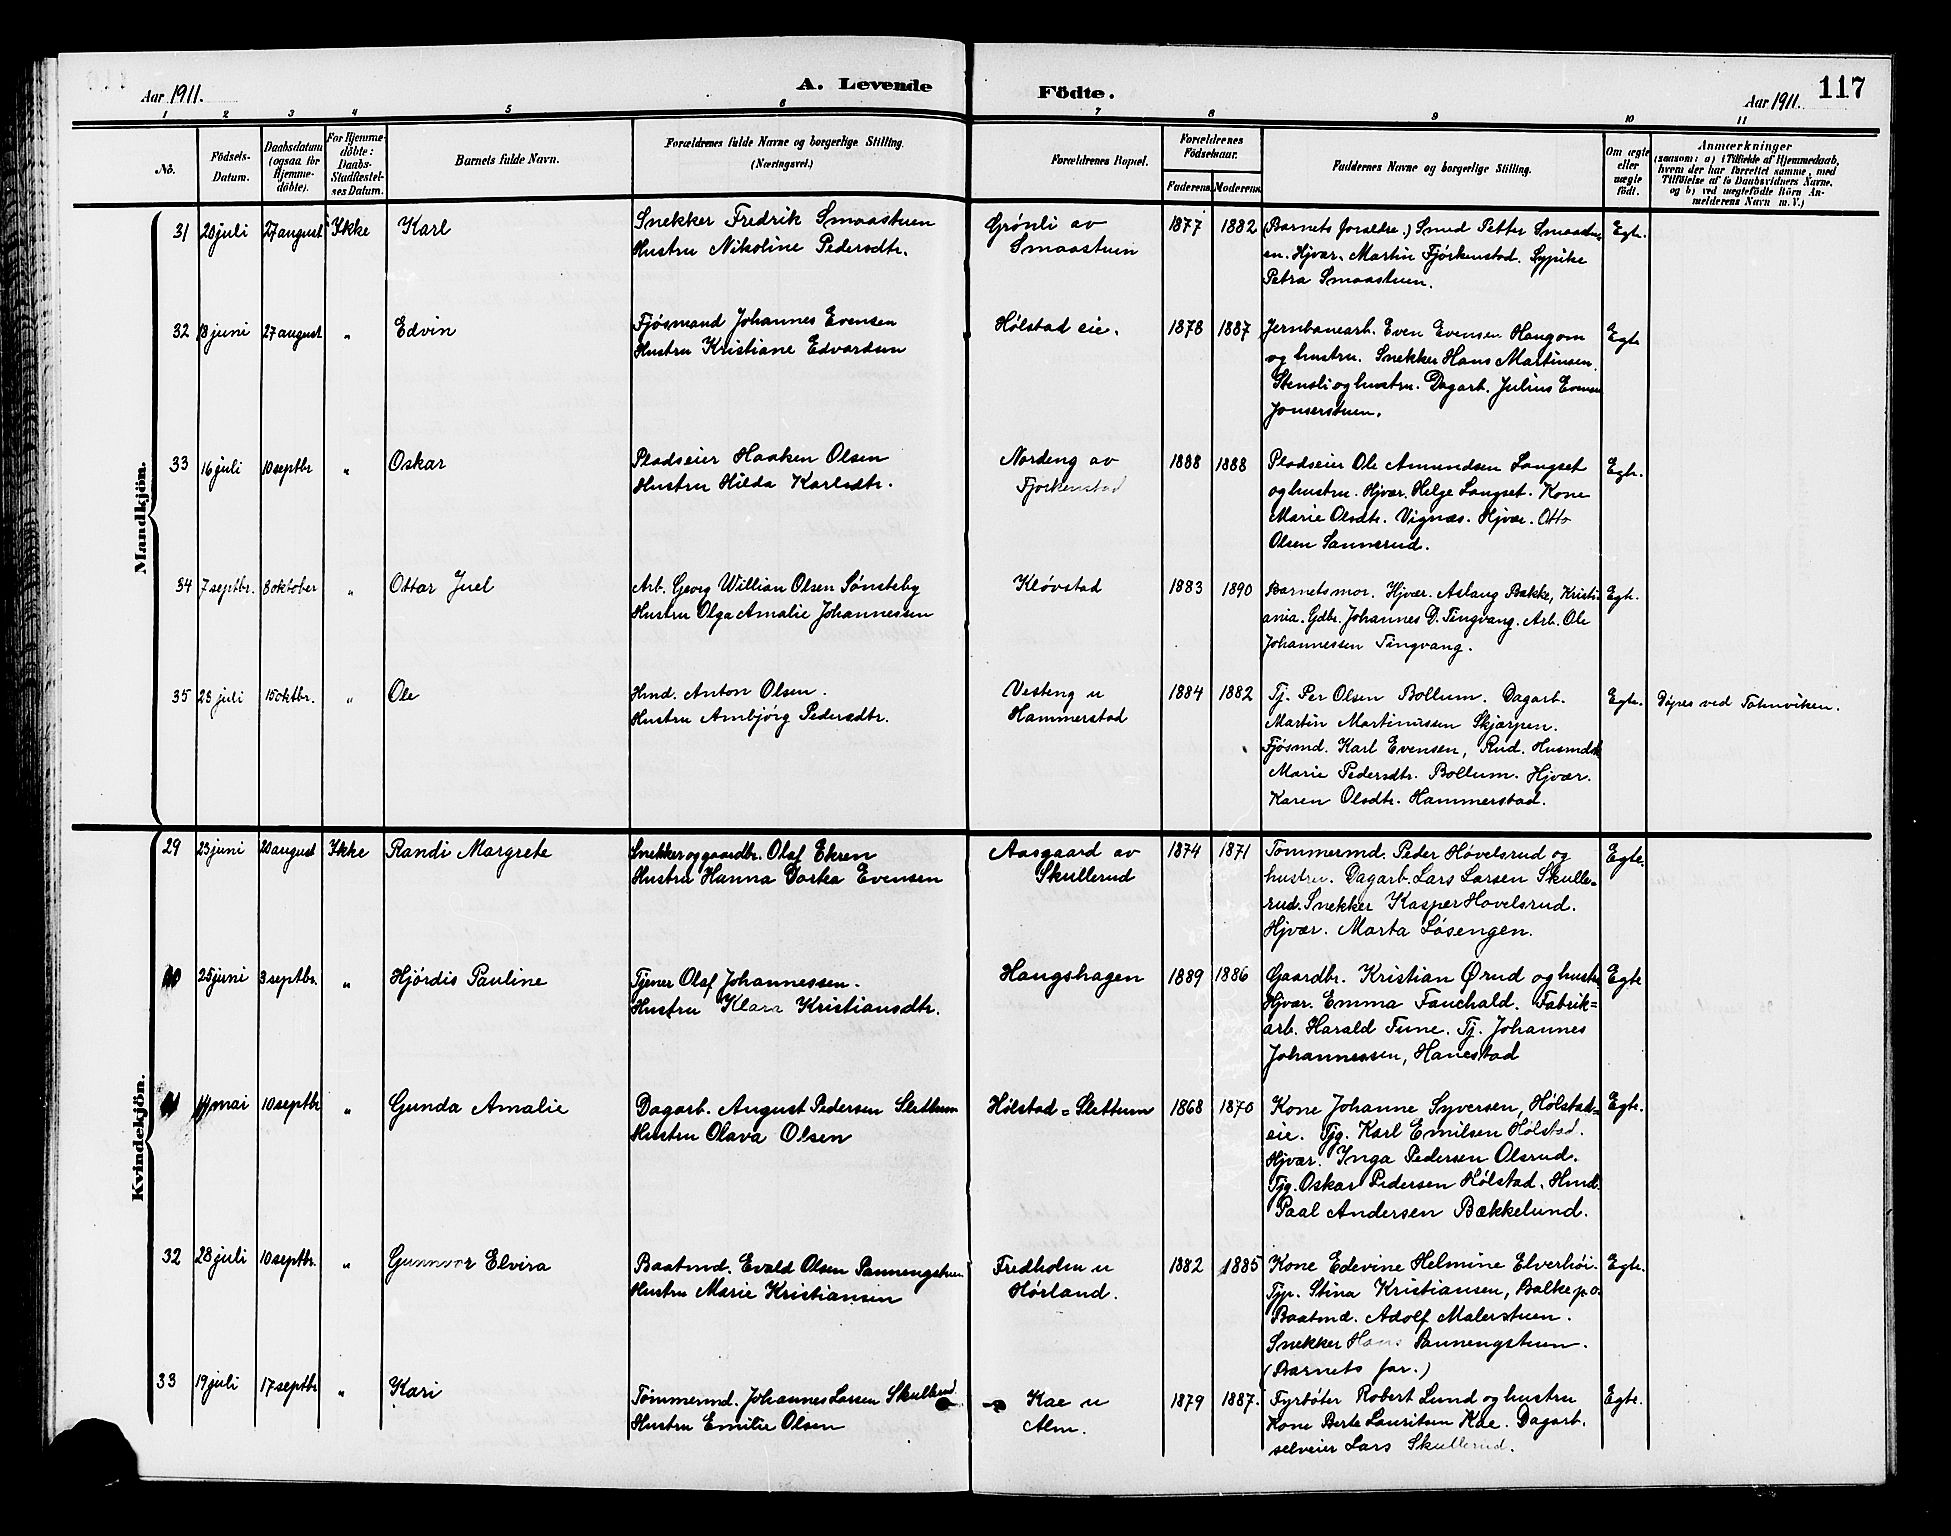 Aar 1911.
A. Levende
Födte.
Aar 1911.
117
1 2 3 4 5 6 7 8 9 10 11
No.
Födsels-Datum.
Daabsdatum (ogsaa for Hjemme-döbte).
For Hjemme-döbte: Daabs-Stadfæstel-ses Datum.
Barnets fulde Navn.
Forældrenes fulde Navne og borgerlige Stilling. (Næringsvei.)
Forældrenes Bopæl.
Forældrenes Födselsaar.
Faderens. Moderens.
Faddernes Navne og borgerlige Stilling.
Om ægte eller uægte födt.
Anmærkninger
(saasom: a) i Tilfælde af Hjemmedaab, hvem der har forrettet samme, med Tilföielse af to Daabsvidners Navne, og b) ved uægtefödte Börn Anmelderens Navn m. V.)
Mandkjön.
31 20 juli 27 august Ikke Karl
Snekker Fredrik Smaastuen
Hustru Nikoline Pedersdtr.
Grønli av
Smaastuen
1877 1882
(Barnets forældre.) Smed Petter Smaastu-
en. Hjvær. Martin Fjørkenstad. Sypike
Petra Smaastuen.
Egte.
32 13 juni 27 august " Edvin
Fjøsmand Johannes Evensen
Hustru Kristiane Edvardsen
Hølstad eie.
1878 1887
Jernbanearb. Even Evensen Haugom
og hustru. Snekker Hans Martinsen
Stensli og hustru. Dagarb. Julius Evensen
Jonserstuen.
Egte
33 16 juli 10 septbr " Oskar
Pladseier Haaken Olsen
Hustru Hilda Karlsdtr.
Nordeng av
Fjørkenstad
1888 1888
Pladseier Ole Amundsen Langset
og hustru. Hjvær. Helge Langset. Kone
Marie Olsdtr. Vignæs. Hjvær. Otto
Olsen Sannerud.
Egte.
34 7 septbr. 8 oktober " Ottar Juel
Arb. Georg Willian Olsen Sønsteby
Hustru Olga Amalie Johannessen
Kløvstad
1883 1890
Barnets mor. Hjvær. Aslaug Bakke, Kristi-
ania. Gdbr. Johannes D. Tingvang. Arb. Ole
Johannessen Tingvang.
Egte.
35 23 juli 15 oktbr. " Ole
Hmd. Anton Olsen.
Hustru Ambjørg Pedersdtr.
Vesteng u
Hammerstad
1884 1882
Tj. Per Olsen Bollum. Dagarb.
Martin Martinussen Skjærpen.
Fjøsmd. Karl Evensen, Rud. Husmdsk
Marie Pedersdtr. Bollum. Hjvær.
Karen Olsdtr. Hammerstad.
Egte. Døpes ved Totenviken.
Kvindekjön.
29 23 juni 20 august Ikke Randi Margrete
Snekker og gaardbr. Olaf Ekren
Hustru Hanna Dorka Evensen
Aasgaard av
Skullerud
1874 1871
Tømmermd. Peder Høvelsrud og
hustru. Dagarb. Lars Larsen Skulle-
rud. Snekker Kasper Hovelsrud.
Hjvær. Marta Løsengen.
Egte.
25 juni 3 septbr. " Hjørdis Pauline
Tjener Olaf Johannessen.
Hustru Klara Kristiansdtr.
Haugshagen
1889 1886
Gaardbr. Kristian Ørud og hustru
Hjvær. Emma Fauchald. Fabrik-
arb. Harald Tune. Tj. Johannes
Johannessen, Hanestad
Egte
mai 10 septbr " Gunda Amalie
Dagarb. August Pedersen Slettum
Hustru Olava Olsen
Hølstad-Slettum
1868 1870
Kone Johanne Syversen, Hølstad-
eie. Tjg. Karl Emilsen Hølstad.
Hjvær. Inga Pedersen Olsrud.
Tjg. Oskar Pedersen Hølstad. Hmd.
Paal Andersen Bækkelund.
Egte.
32 28 juli 10 septbr. " Gunnvor Elvira
Baatmd. Evald Olsen Pannengstuen
Hustru Marie Kristiansen
Fredholm u
Hørland.
1882 1885
Kone Edevine Helmine Elverhøi.
Tjp. Stina Kristiansen, Balke p.o.
Baatmd. Adolf Malerstuen.
Snekker Hans Pannengstuen.
(Barnets far.)
Egte.
33 19 juli 17 septbr " Kari
Tømmermd. Johannes Larsen Skullerud
Hustru Emilie Olsen
Kae u
Alm.
1879 1887.
Fyrbøter Robert Lund og hustru
Kone Berte Lauritsen Kae. Dagarb.
selveier Lars Skullerud.
Egte.